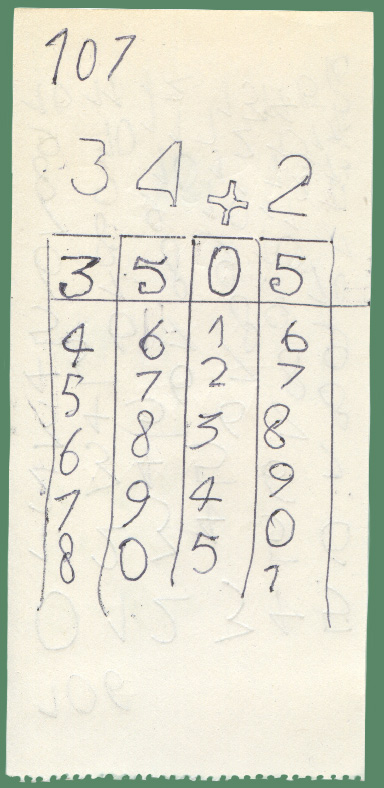 107
3 4 + 2
3 5 0 5
4 6 1 6
5 7 2 7
6 8 3 8
7 9 4 9
8 0 5 0
1